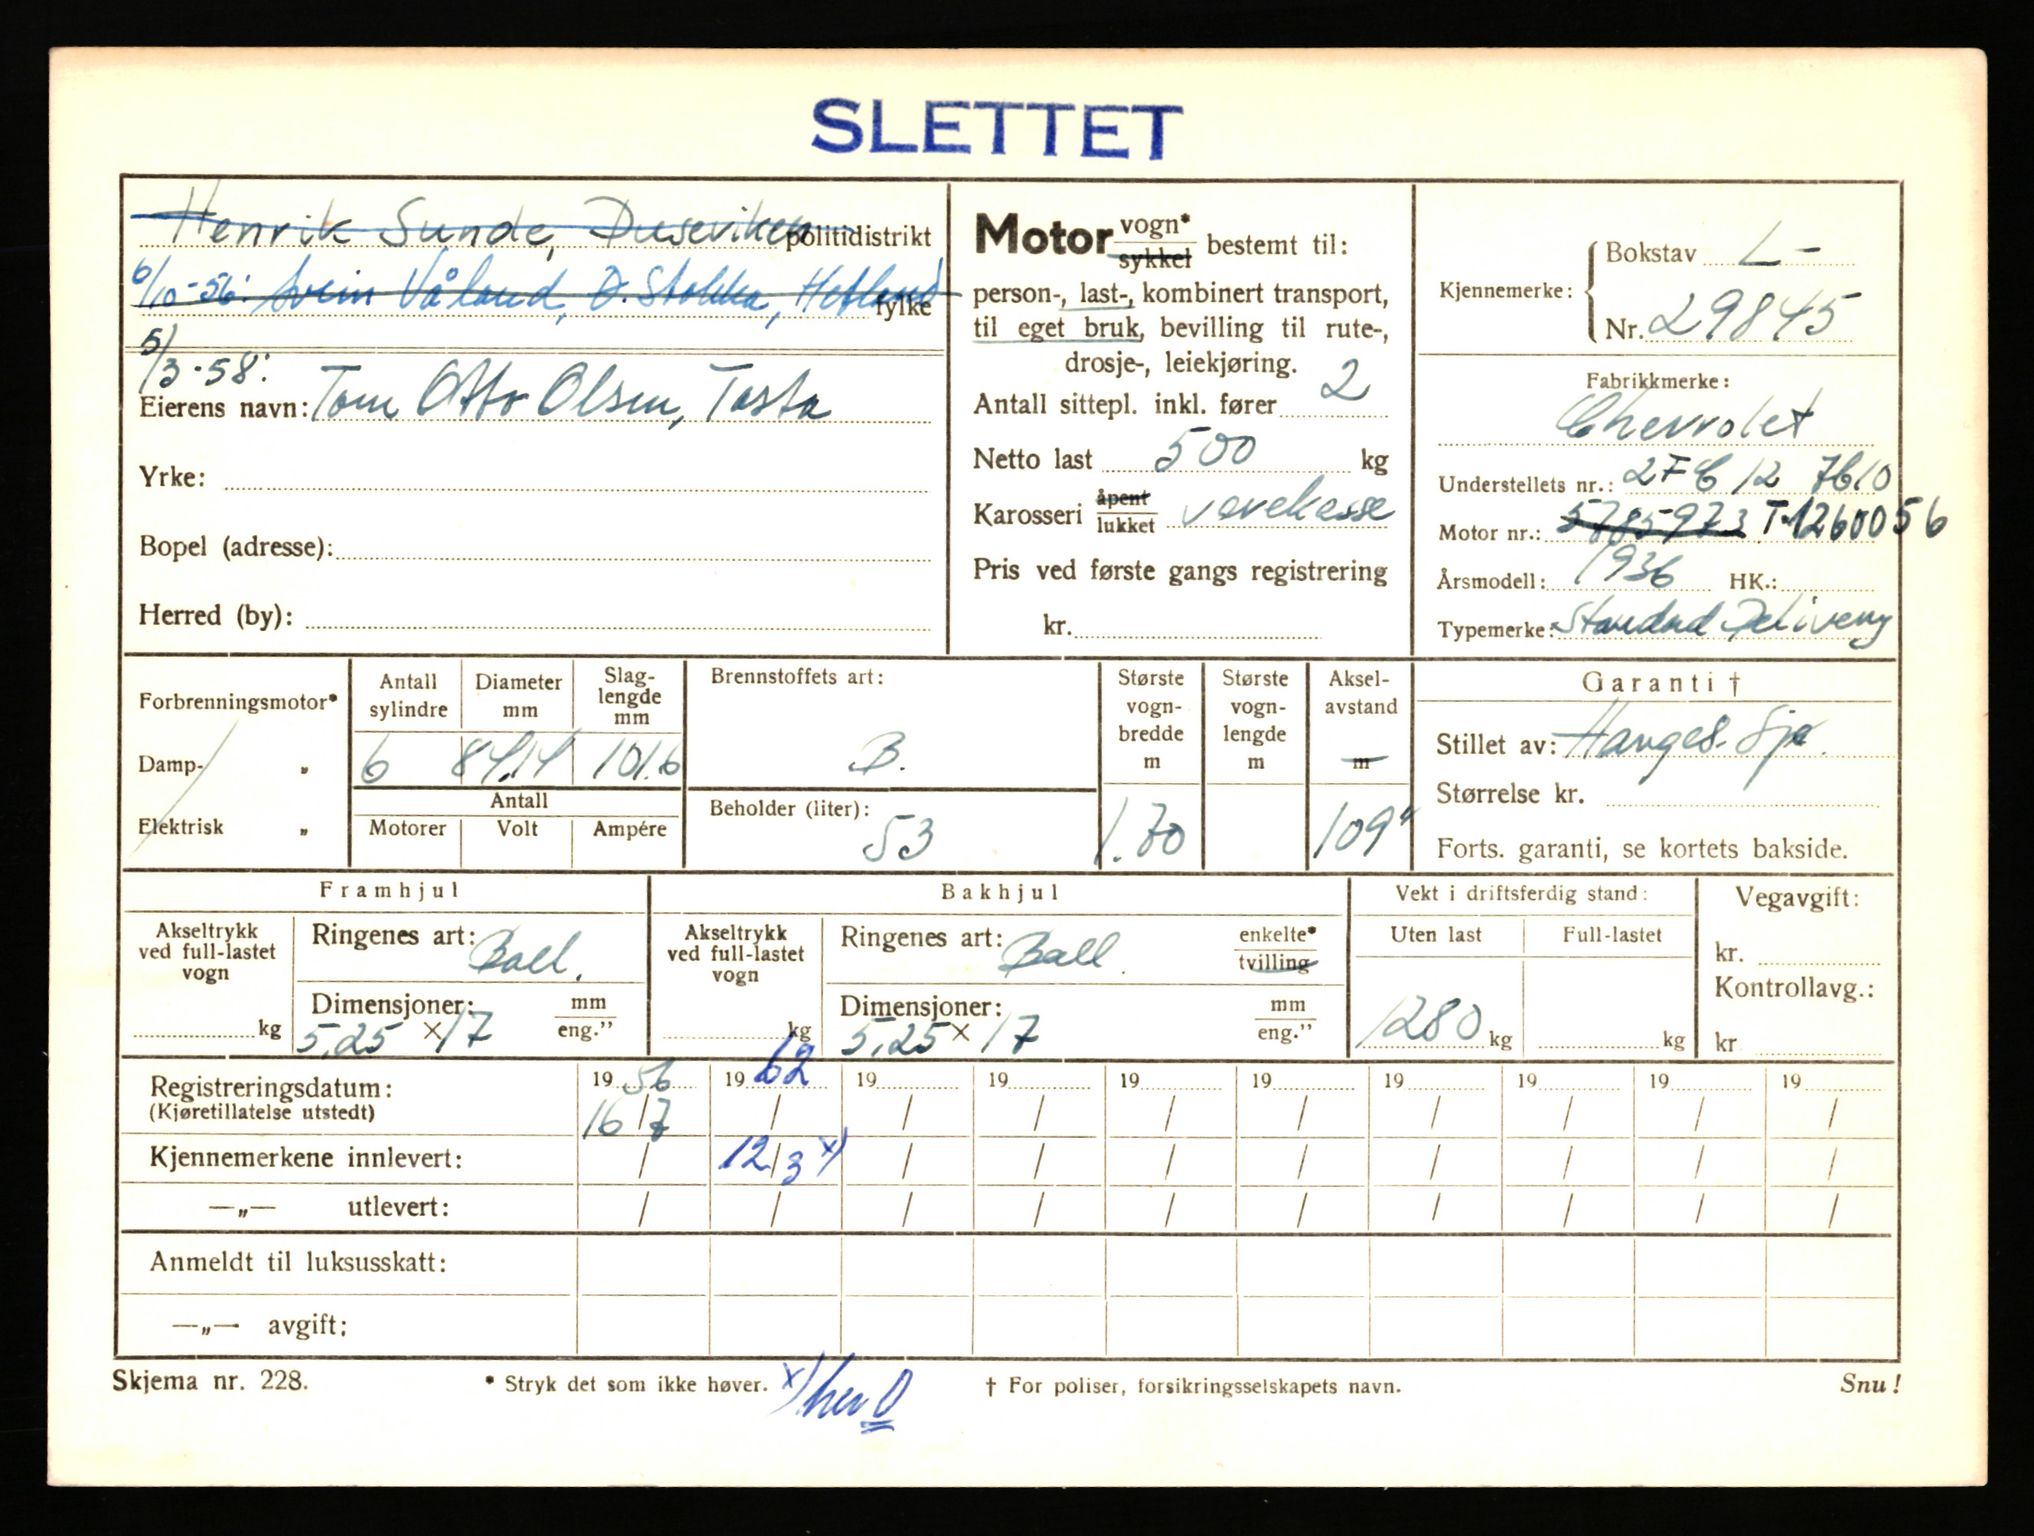 SLETTET
Henrik Sunde, Duseviken politidistrikt
6/10-56: Svein Våland, D. Stokka, Hetland fylke
5/3-58:
Eierens navn: Tom Otto Olsen, Tasta
Yrke:
Bopel (adresse):
Herred (by):
Motor vogn* / sykkel bestemt til:
person-, last-, kombinert transport,
til eget bruk, bevilling til rute-,
drosje-, leiekjøring.
Antall sittepl. inkl. fører 2
Netto last 500 kg
Karosseri åpent / lukket varekasse
Pris ved første gangs registrering
kr.
Kjennemerke: Bokstav L-
Nr. 29845
Fabrikkmerke:
Chevrolet
Understellets nr.: 2FC 12 7610
Motor nr.: 5785973 T-1260056
Årsmodell: 1936 HK.:
Typemerke: Standard Delivery
Forbrenningsmotor*
Damp- „
Elektrisk „
Antall sylindre
6
Diameter mm
84,14
Slag-lengde mm
101,6
Antall
Motorer Volt Ampére
Brennstoffets art:
B.
Beholder (liter):
53
Største vogn-bredde m
1.70
Største vogn-lengde m
Aksel-avstand m
109"
Garanti †
Stillet av: Hauges. Sjø.
Størrelse kr.
Forts. garanti, se kortets bakside.
Framhjul
Akseltrykk ved full-lastet vogn
kg
Ringenes art: Ball.
Dimensjoner: mm / eng.”
5,25 × 17
Bakhjul
Akseltrykk ved full-lastet vogn
kg
Ringenes art: Ball. enkelte* / tvilling
Dimensjoner: mm / eng.”
5,25 × 17
Vekt i driftsferdig stand:
Uten last Full-lastet
1280 kg kg
Vegavgift:
kr.
Kontrollavg.:
kr
Registreringsdatum: 19 56 19 62 19 19 19 19 19 19 19 19
(Kjøretillatelse utstedt) 16/7 / / / / / / / / /
Kjennemerkene innlevert: / 12/3 x) / / / / / / / /
—„— utlevert: / / / / / / / / / /
Anmeldt til luksusskatt:
—„— avgift:
Skjema nr. 228. * Stryk det som ikke høver. x) † For poliser, forsikringsselskapets navn. Snu!